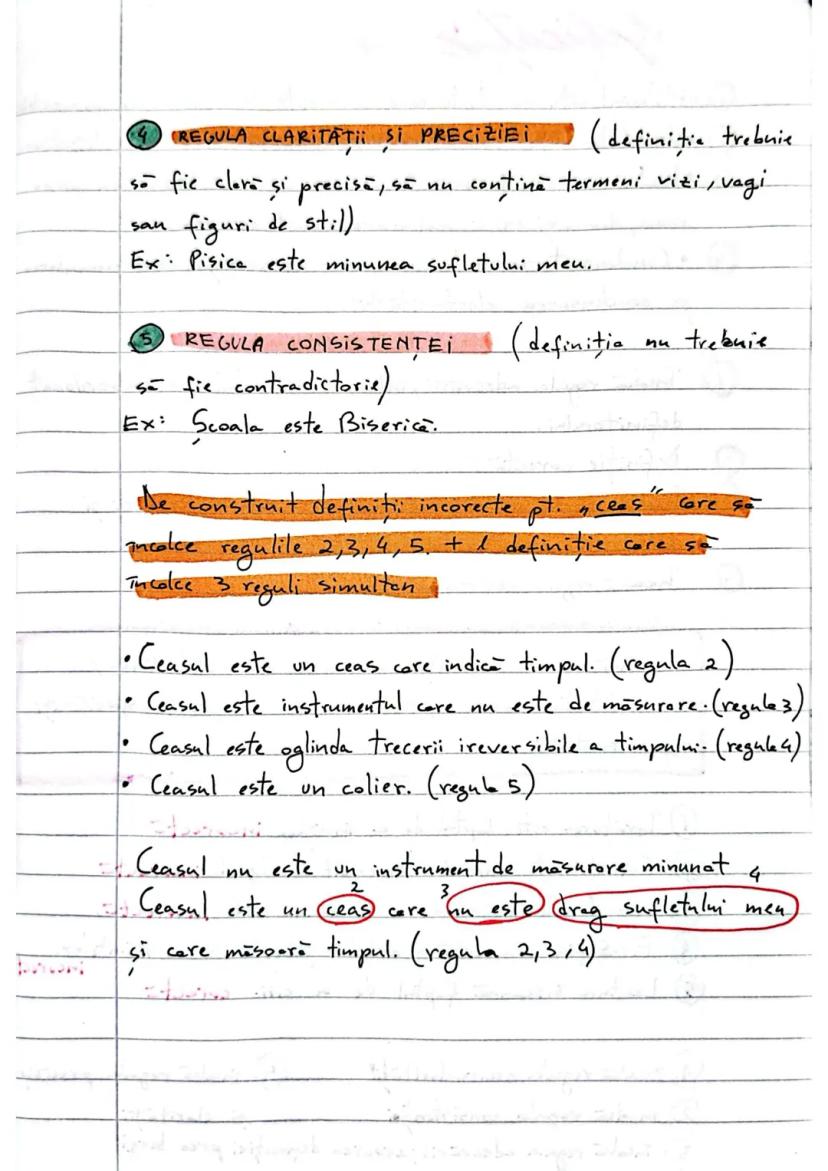 4 REGULA CLARITĂȚII ȘI PRECIZIEI (definiția trebuie
să fie clară și precisă, să nu conțină termeni vizi, vagi
sau figuri de stil)
Ex: Pisica este minunea sufletului meu.
5 REGULA CONSISTENȚEI (definiția nu trebuie
să fie contradictorie)
Ex: Școala este Biserică.
De construit definiții incorecte pt. „ceas” care să
încalce regulile 2,3,4,5. + 1 definiție care să
încalce 3 reguli simultan
• Ceasul este un ceas care indică timpul. (regula 2)
• Ceasul este instrumentul care nu este de măsurare. (regula 3)
• Ceasul este oglinda trecerii ireversibile a timpului. (regula 4)
• Ceasul este un colier. (regula 5)
Ceasul nu este un instrument de măsurare minunat 4
2 3
Ceasul este un ceas care nu este drag sufletului meu
și care măsoară timpul. (regula 2,3,4)